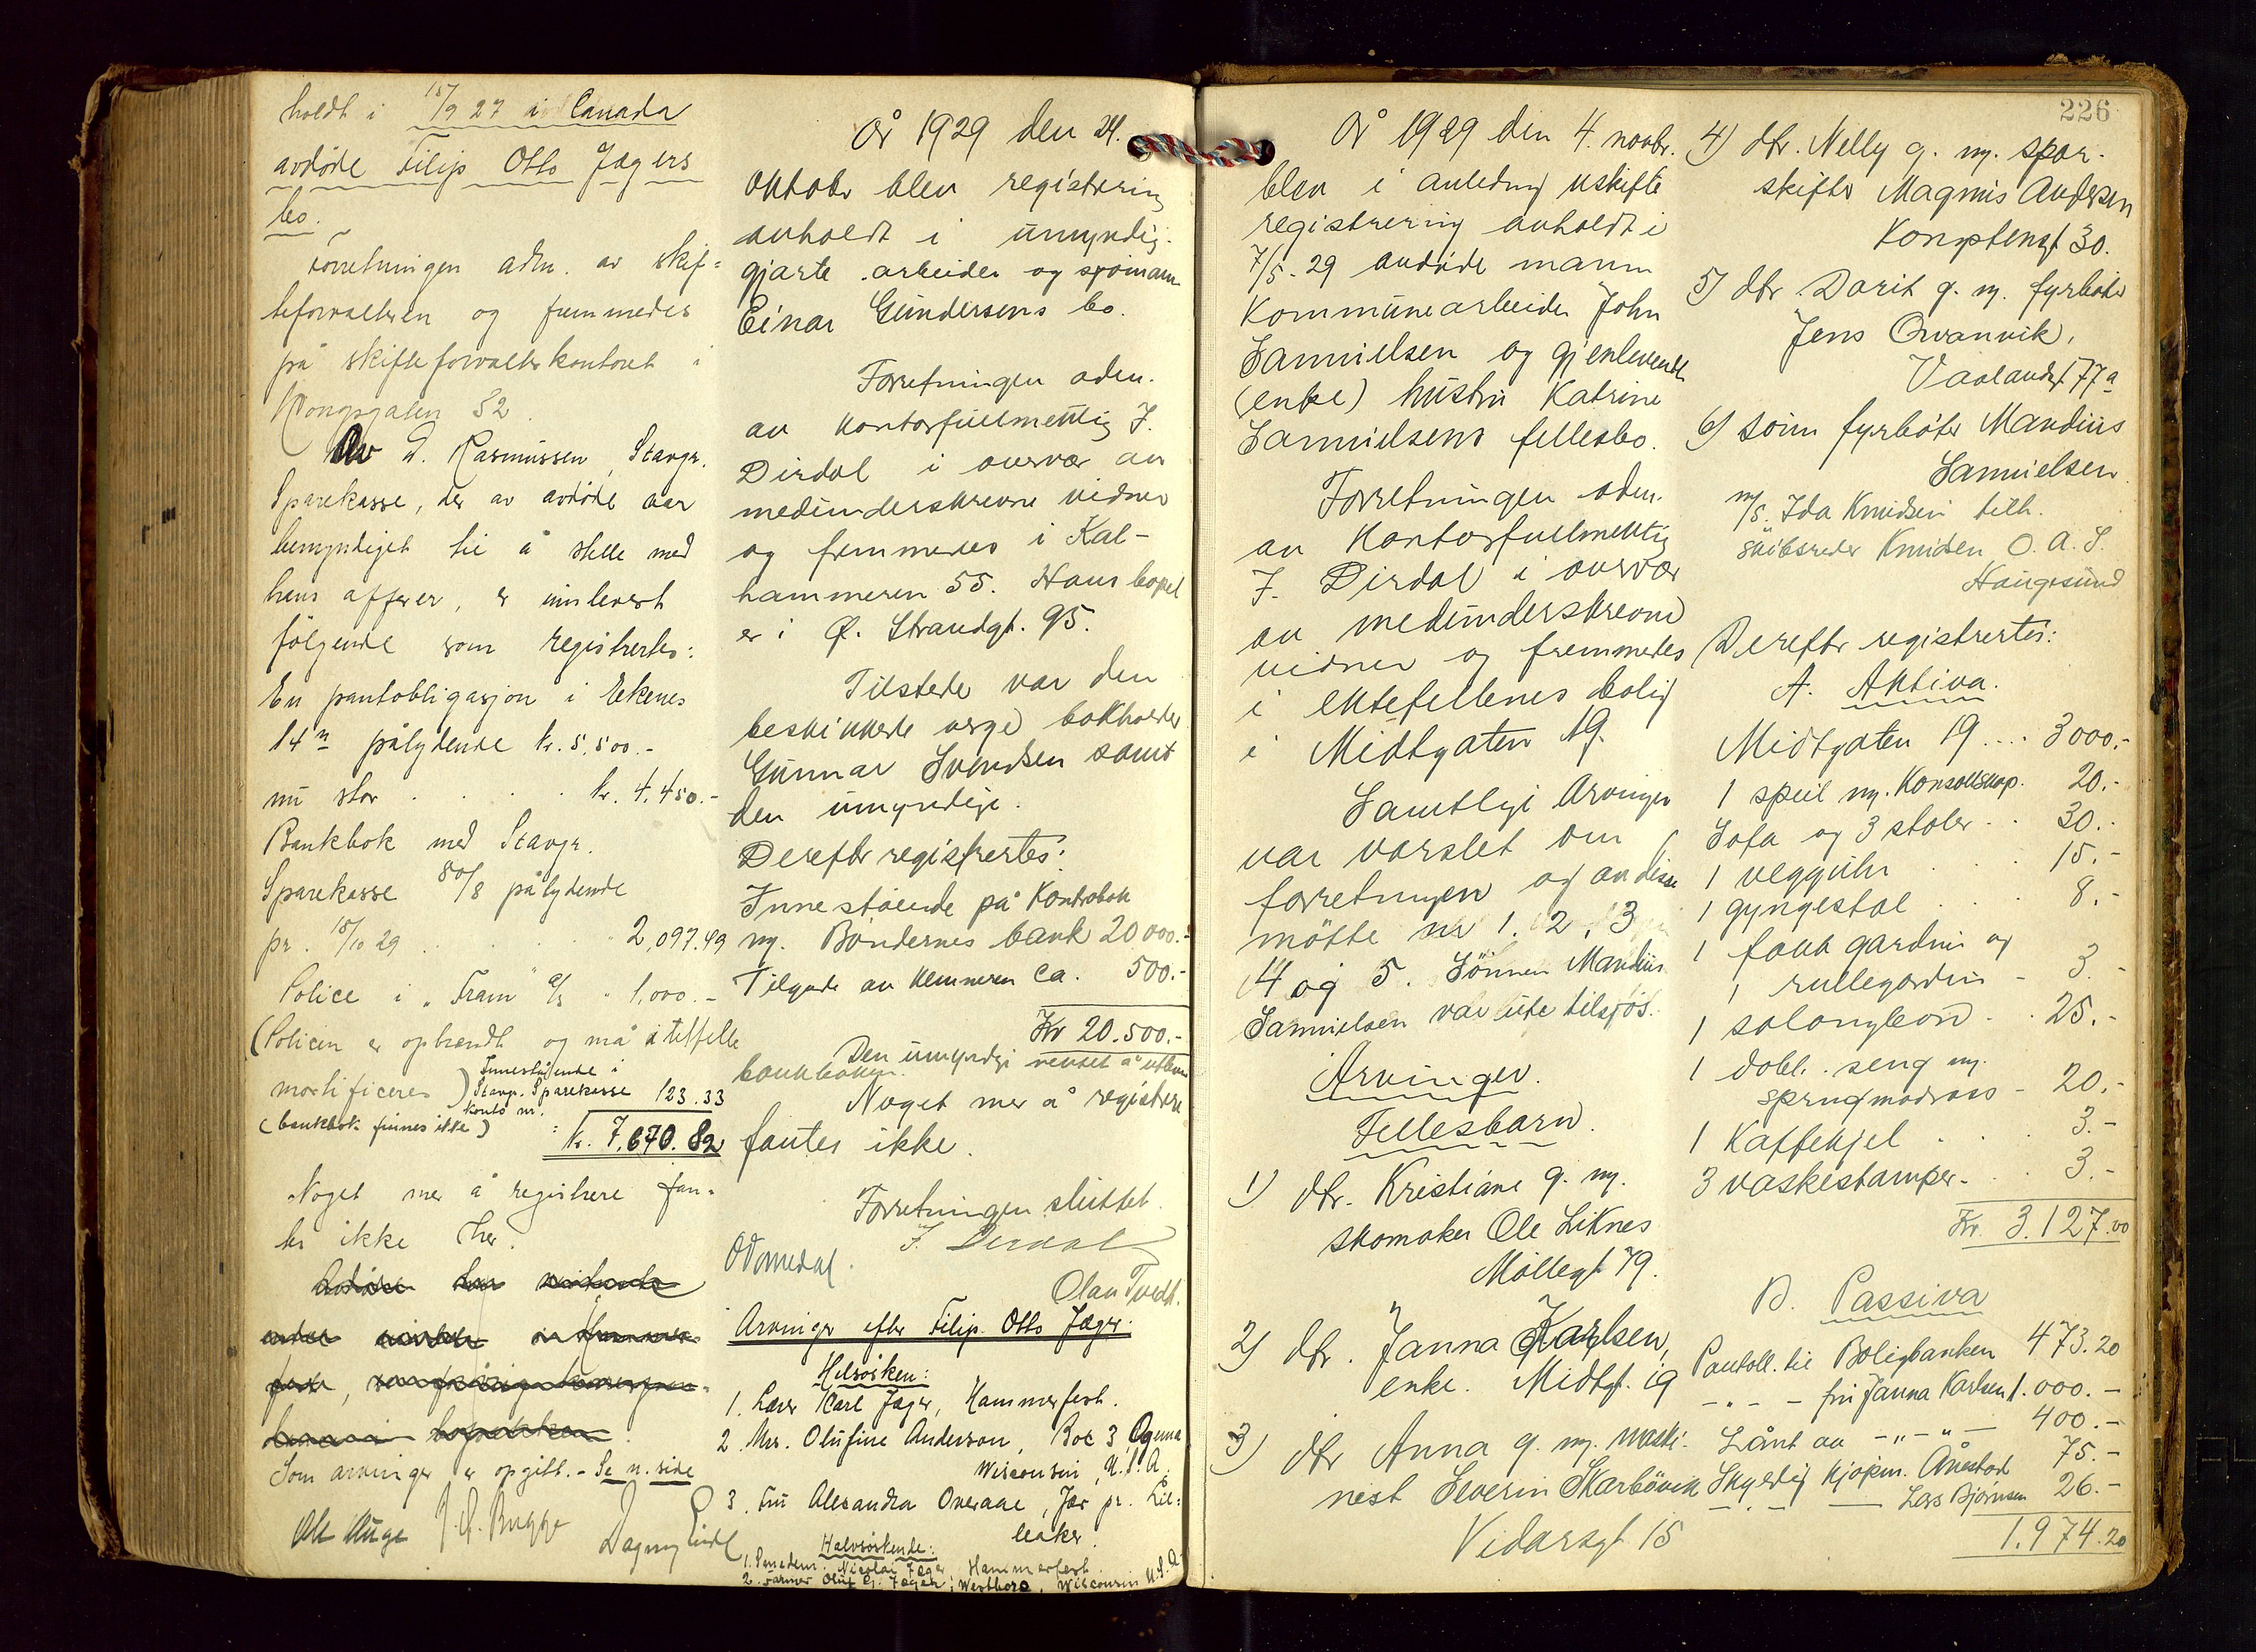 holdt i 15/9 27 i Canada
avdøde Filip Otto Jægers
bo.
Forretningen adm. av skif=
teforvalteren og fremmedes
på skifteforvalterkontoret i
Kongsgaten 52.
Av D. Rasmussen, Stavgr.
Sparekasse, der av avdøde var
bemyndiget til å stelle med
hans affærer, er innlevert
følgende som registrertes:
En pantobligasjon i Eikenes
14n pålydende kr. 5,500.-
nu stor . . . . kr. 4.450.-
Bankbok med Stavgr.
Sparekasse 80/8 pålydende
pr. 15/10 29 . . . . . 2,097.49
Police i "Fram" a/s " 1,000.-
(Policen er opbrendt og må i tilfelle
mortificeres) Innestående i
Stavgr. Sparekasse 123.33
konto nr.
(bankbok finnes ikke)
kr. 7,670.82
Noget mer å registrere fan-
tes ikke her.
Som arvinger er opgitt. - Se n. side
Ole Auge J. A. Bugge
Dagny Lidel
År 1929 den 24.
oktober blev registrering
avholdt i umyndig-
gjorte arbeider og sjömann
Einar Gundersens bo.
Forretningen adm.
av kontorfullmektig J.
Dirdal i overvær av
medunderskrevne vidner
og fremmedes i Kal-
hammeren 55. Hans bopel
er i Ø. Strandgt. 95.
Tilstede var den
beskikkede verge bokholder
Gunnar Svendsen samt
den umyndige.
Derefter registrertes:
Innestående på Kontrabok
m. Bøndernes bank 20000.-
Tilgode av kemneren ca. 500.-
Kr 20.500.-
Den umyndige nektet å utlevere
bankboken.
Noget mer å registrere
fantes ikke.
Forretningen sluttet.
J. Dirdal
O Omedal.
Olav Tvedt.
Arvinger efter Filip Otto Jæger:
Helsøsken:
1. Lærer Karl Jæger, Hammerfest.
2. Mrs. Olufine Anderson, Box 3 Ogema
Wisconsin, U.S.A.
3. Fru Alexandra Overaae, Jar pr. Lil=
leaker.
Halvsøskende:
1. Nicolai Jæger, Hammerfest
2. Farmer Oluf G. Jæger, Westboro, Wisconsin U.S.A.
226
År 1929 den 4. novbr.
blev i anledning uskifte
registrering avholdt i
7/5-29 avdøde mann
Kommunearbeider John
Samuelsen og gjenlevende
(enke) hustru Katrine
Samuelsens fellesbo.
Forretningen adm.
av Kontorfullmektig
J. Dirdal i overvær
av medunderskrevne
vidner og fremmedes
i ektefellenes bolig
i Midtgaten 19.
Samtlige Arvinger
var varslet om
forretningen og av disse
møtte nr 1. 2, 3
4 og 5. Sønnen Mandius
Samuelsen var ute tilsjøs.
Arvinger.
Fellesbarn.
1) dtr. Kristiane g. m.
skomaker Ole Liknes
Møllegt 79.
2) dtr. Janna Karlsen,
enke. Midtgt. 19
3) dtr Anna g. m. maski-
nest Severin Skarbövik
Vidarsgt 15
4) dtr. Nelly g. m. spor-
skifter Magnus Andersen
Kongstensgt 30.
5) dtr. Dorit g. m. fyrbøter
Jens Qvanvik,
Vaalandsgt 77a
6) sønn fyrbøter Mandius
Samuelsen.
m/s. Ida Knudsen tilh.
skibsreder Knudsen O. A. S.
Haugesund
Derefter registrertes:
A. Aktiva.
Midtgaten 19 .... 3000.-
1 speil m. Konsollskap. 20.-
Sofa og 3 stoler . . 30.-
1 vegguhr . . . 15.-
1 gyngestol . . . . 8.-
1 fank gardin og
1 rullegardin - 3.-
1 salongbord . . 25.-
1 dobl. seng m.
springmadrass - 20.-
1 Kaffekjel . . . 3.-
3 vaskestamper - . 3.-
Kr. 3.127.00
B. Passiva
Pantobl. til Boligbanken 473.20
- " - - fru Janna Karlsen 1.000.-
Lånt av - " - " - 400.-
Skyldig kjøpm. Ånestad 75.-
- " - - Lars Bjørnsen 26.-
1.974.20